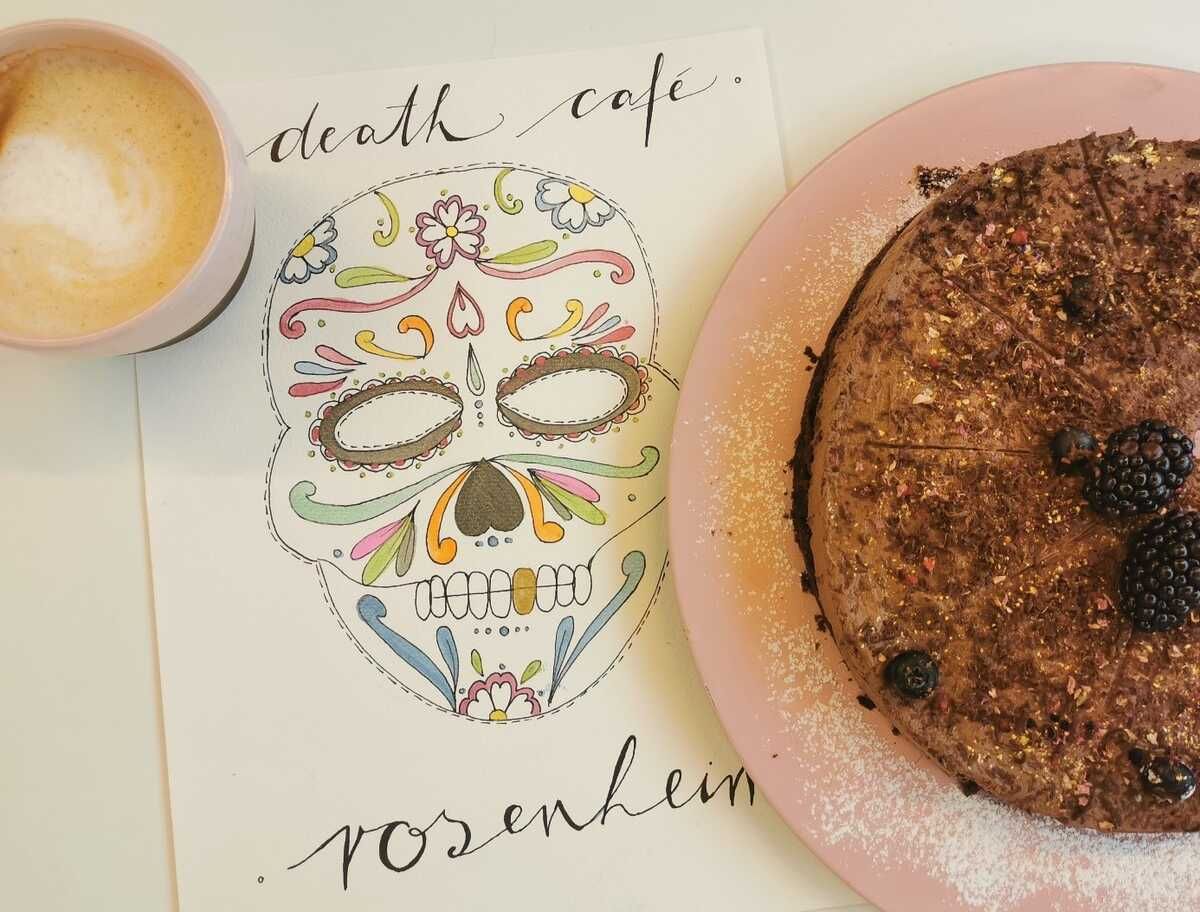 death café.
. rosenheim